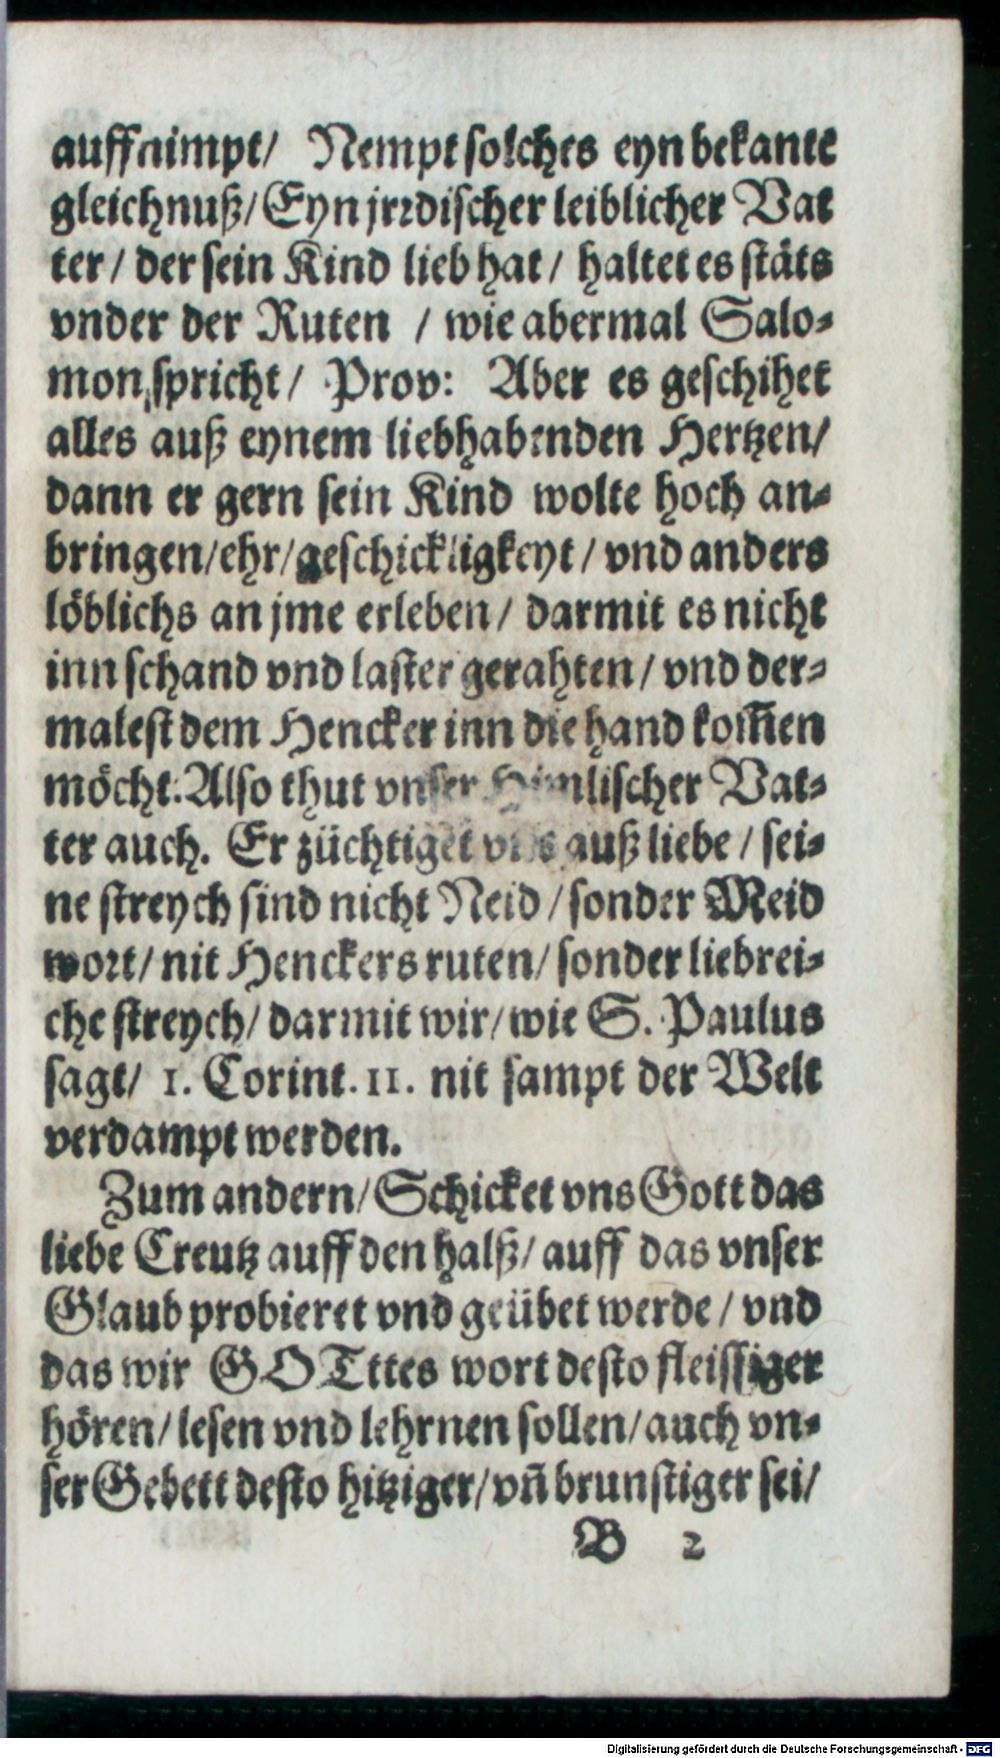 auffnimpt/ Nempt solches eyn bekante
gleichnuß/ Eyn jrrdischer leiblicher Vat
ter/ der sein Kind lieb hat/ haltet es stäts
vnder der Ruten / wie abermal Salo-
mon spricht/ Prov: Aber es geschihet
alles auß eynem liebhabenden Hertzen/
dann er gern sein Kind wolte hoch an-
bringen/ehr/geschickligkeyt/ vnd anders
löblichs an jme erleben/ darmit es nicht
inn schand vnd laster gerahten/ vnd der-
malest dem Hencker inn die hand kom̃en
möcht. Also thut vnser Himlischer Vat-
ter auch. Er züchtiget vns auß liebe/ sei-
ne streych sind nicht Neid/ sonder Meid
wort/ nit Henckers ruten/ sonder liebrei-
che streych/ darmit wir/ wie S. Paulus
sagt/ 1. Corint. 11. nit sampt der Welt
verdampt werden.
Zum andern/ Schicket vns Gott das
liebe Creutz auff den halß/ auff das vnser
Glaub probieret vnd geübet werde/ vnd
das wir GOTttes wort desto fleissiger
hören/ lesen vnd lehrnen sollen/ auch vn-
ser Gebett desto hitziger/ vñ brunstiger sei/
B 2
Digitalisierung gefördert durch die Deutsche Forschungsgemeinschaft - DFG